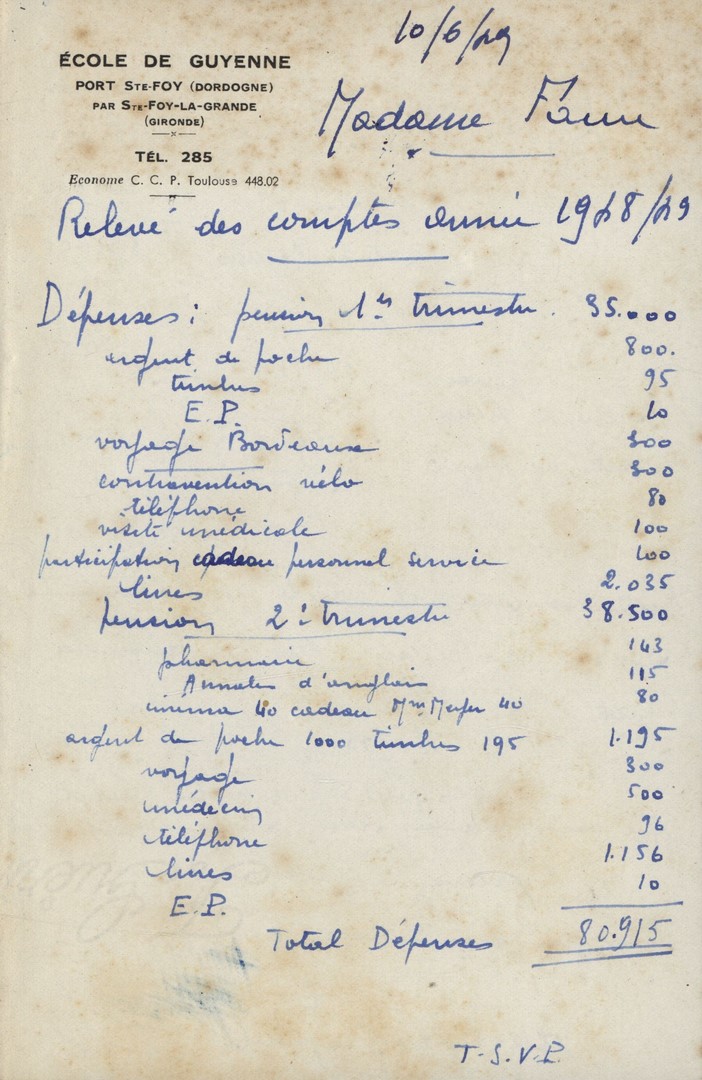 10/6/49
ÉCOLE DE GUYENNE
PORT STE-FOY (DORDOGNE)
PAR STE-FOY-LA-GRANDE
(GIRONDE)
TÉL. 285
Econome C. C. P. Toulouse 448.02
Madame Faure
Relevé des comptes année 1948/49
Dépenses : pension 1er trimestre. 35.000
argent de poche 800.
timbres 95
E.P. 10
voyage Bordeaux 300
contravention vélo 300
téléphone 80
visite médicale 100
participation cadeau personnel service 100
livres 2.035
pension 2e trimestre 38.500
pharmacie 143
Annales d'anglais 115
cinéma 40 cadeau Mme Meyer 40 80
argent de poche 1000 timbres 195 1.195
voyage 300
médecin 500
téléphone 96
livres 1.156
E.P. 10
Total Dépenses 80.915
T.S.V.P.